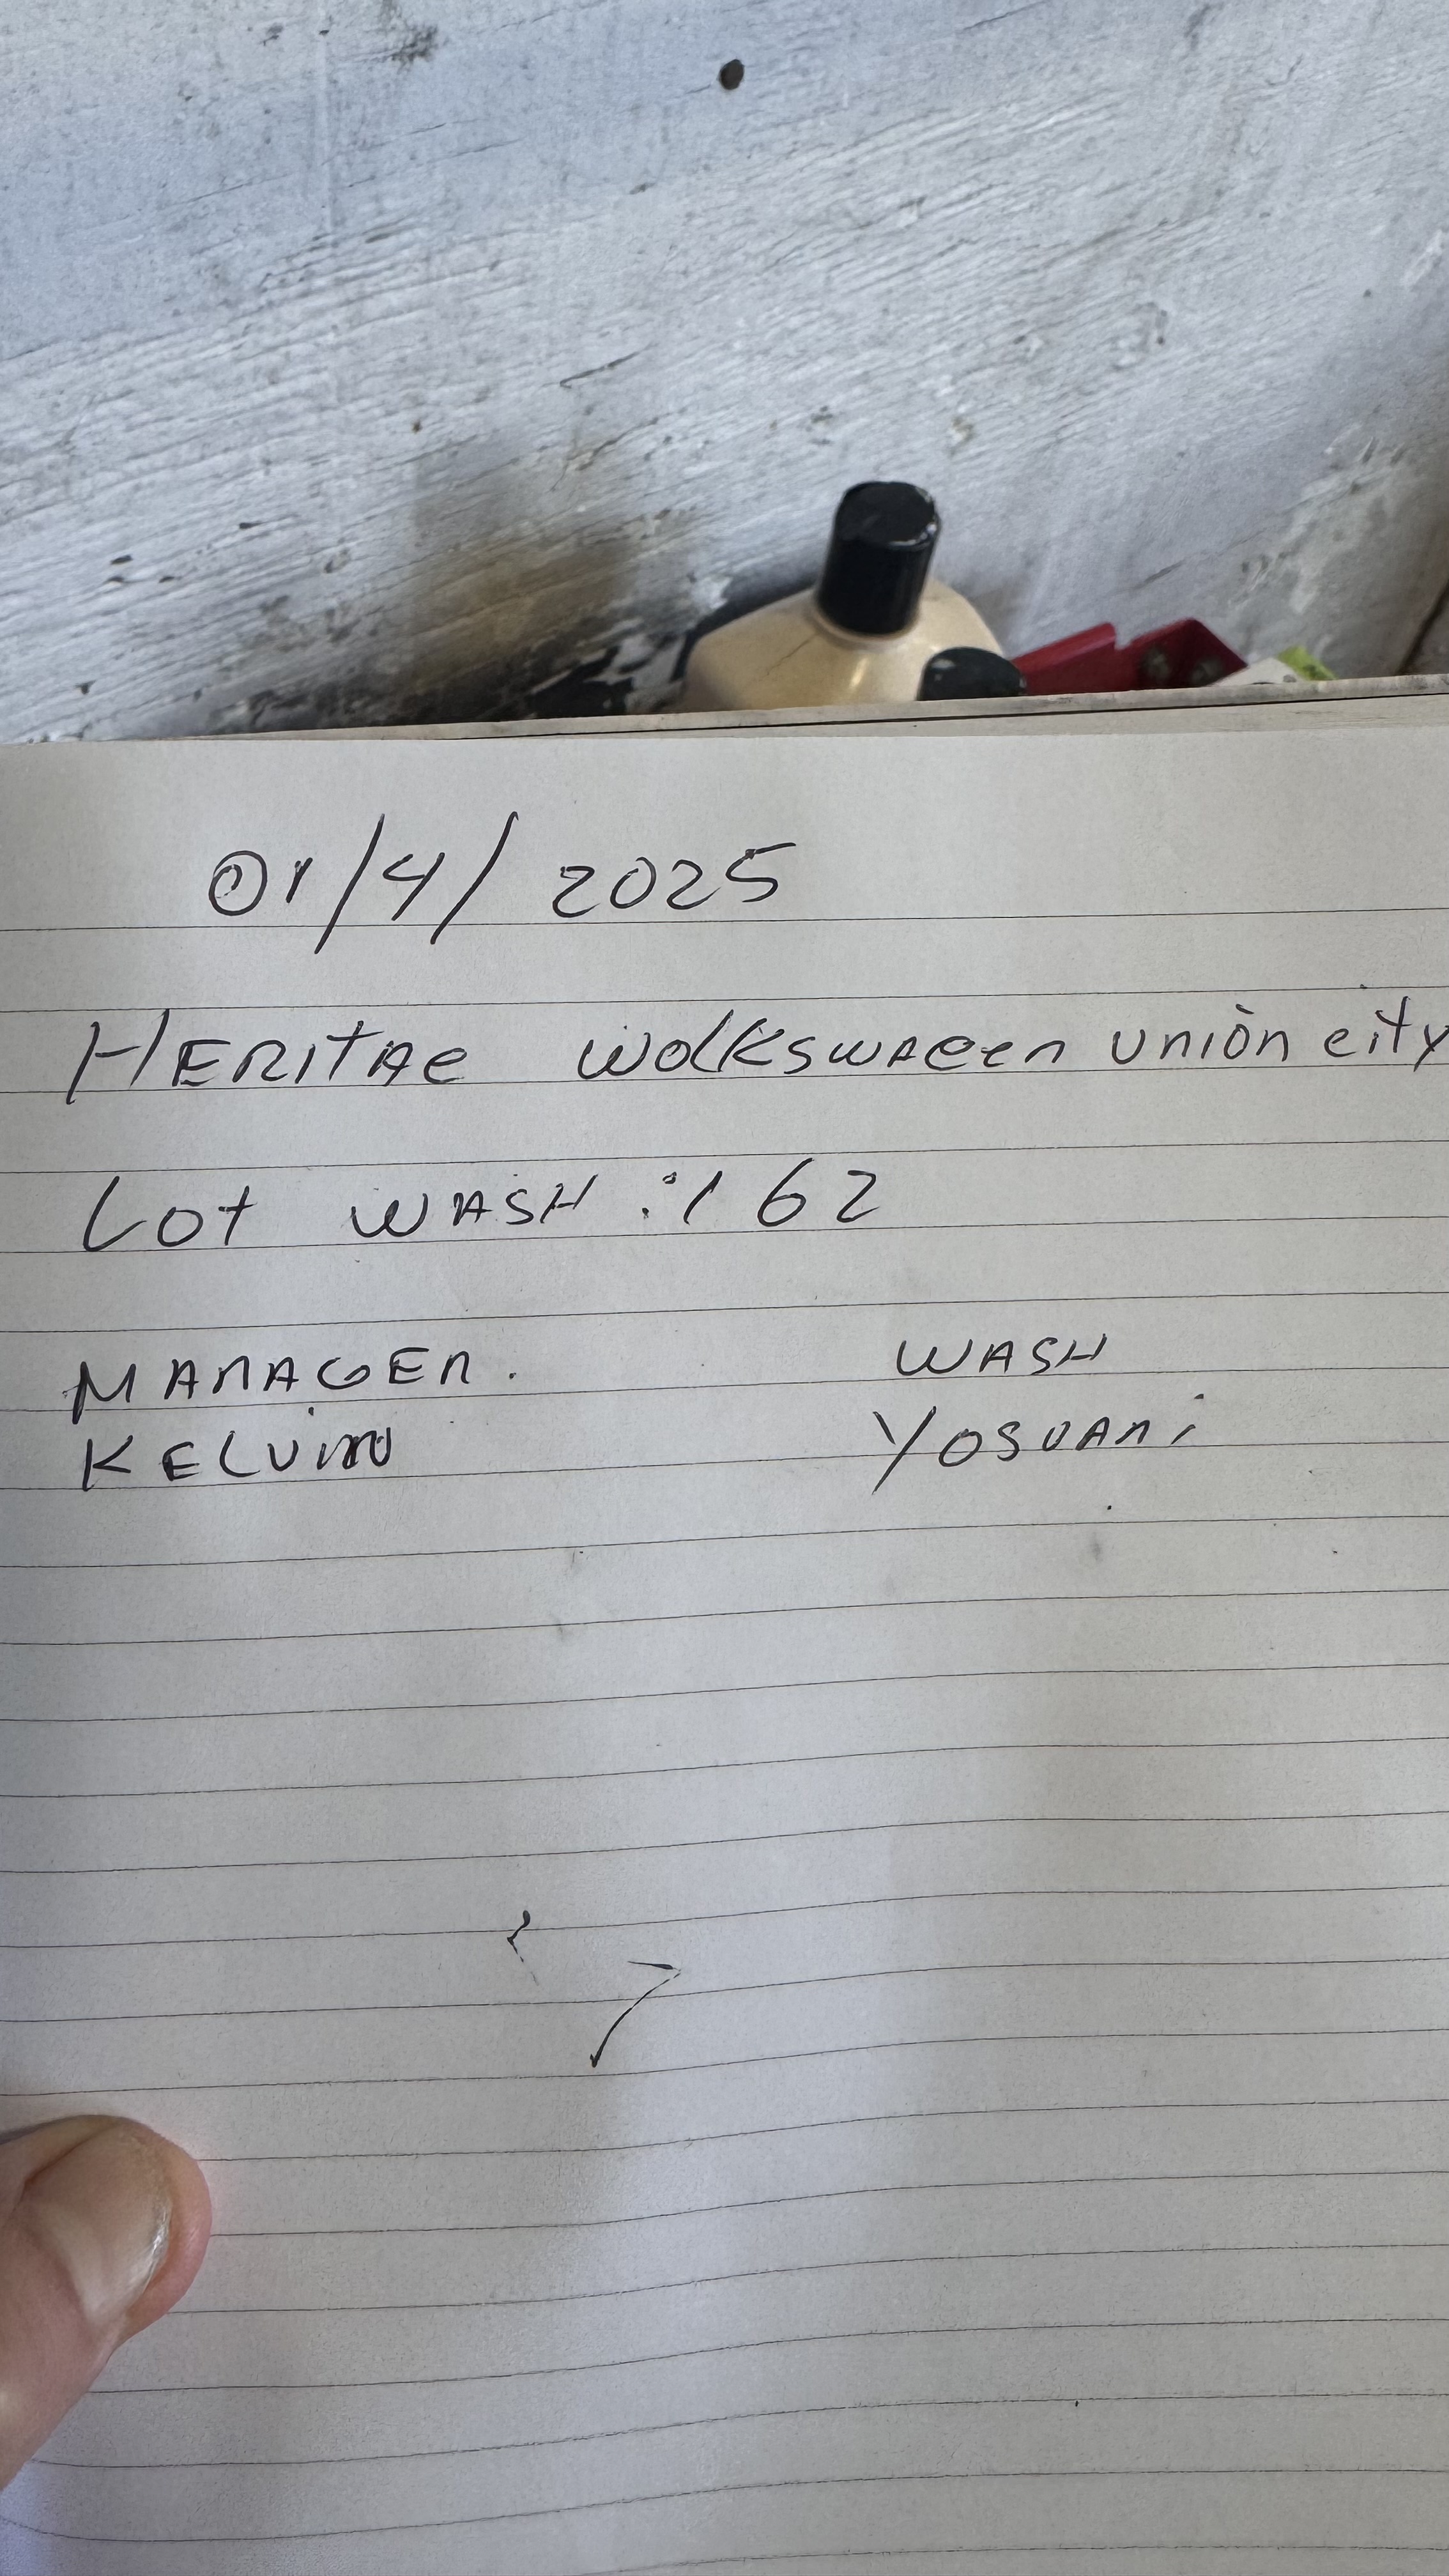 01/4/2025
HERITAe wolkswAeen unión city
Lot WASH : 162
MANAGER. WASH
KELVIN YOSVANi